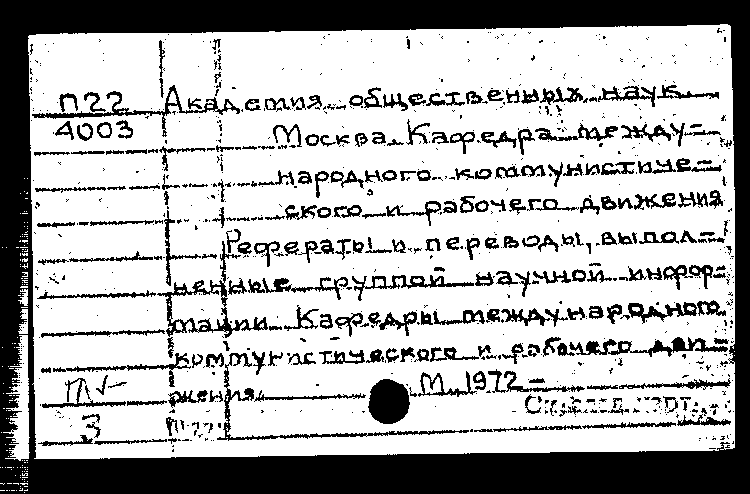 П22 Академия общественных наук.
4003 Москва. Кафедра между-
народного коммунистиче-
ского и рабочего движения
Рефераты и переводы, выпол-
ненные группой научной инфор-
мации Кафедры международного
коммунистического и рабочего дви-
жения. М. 1972 –
След. карт.
3